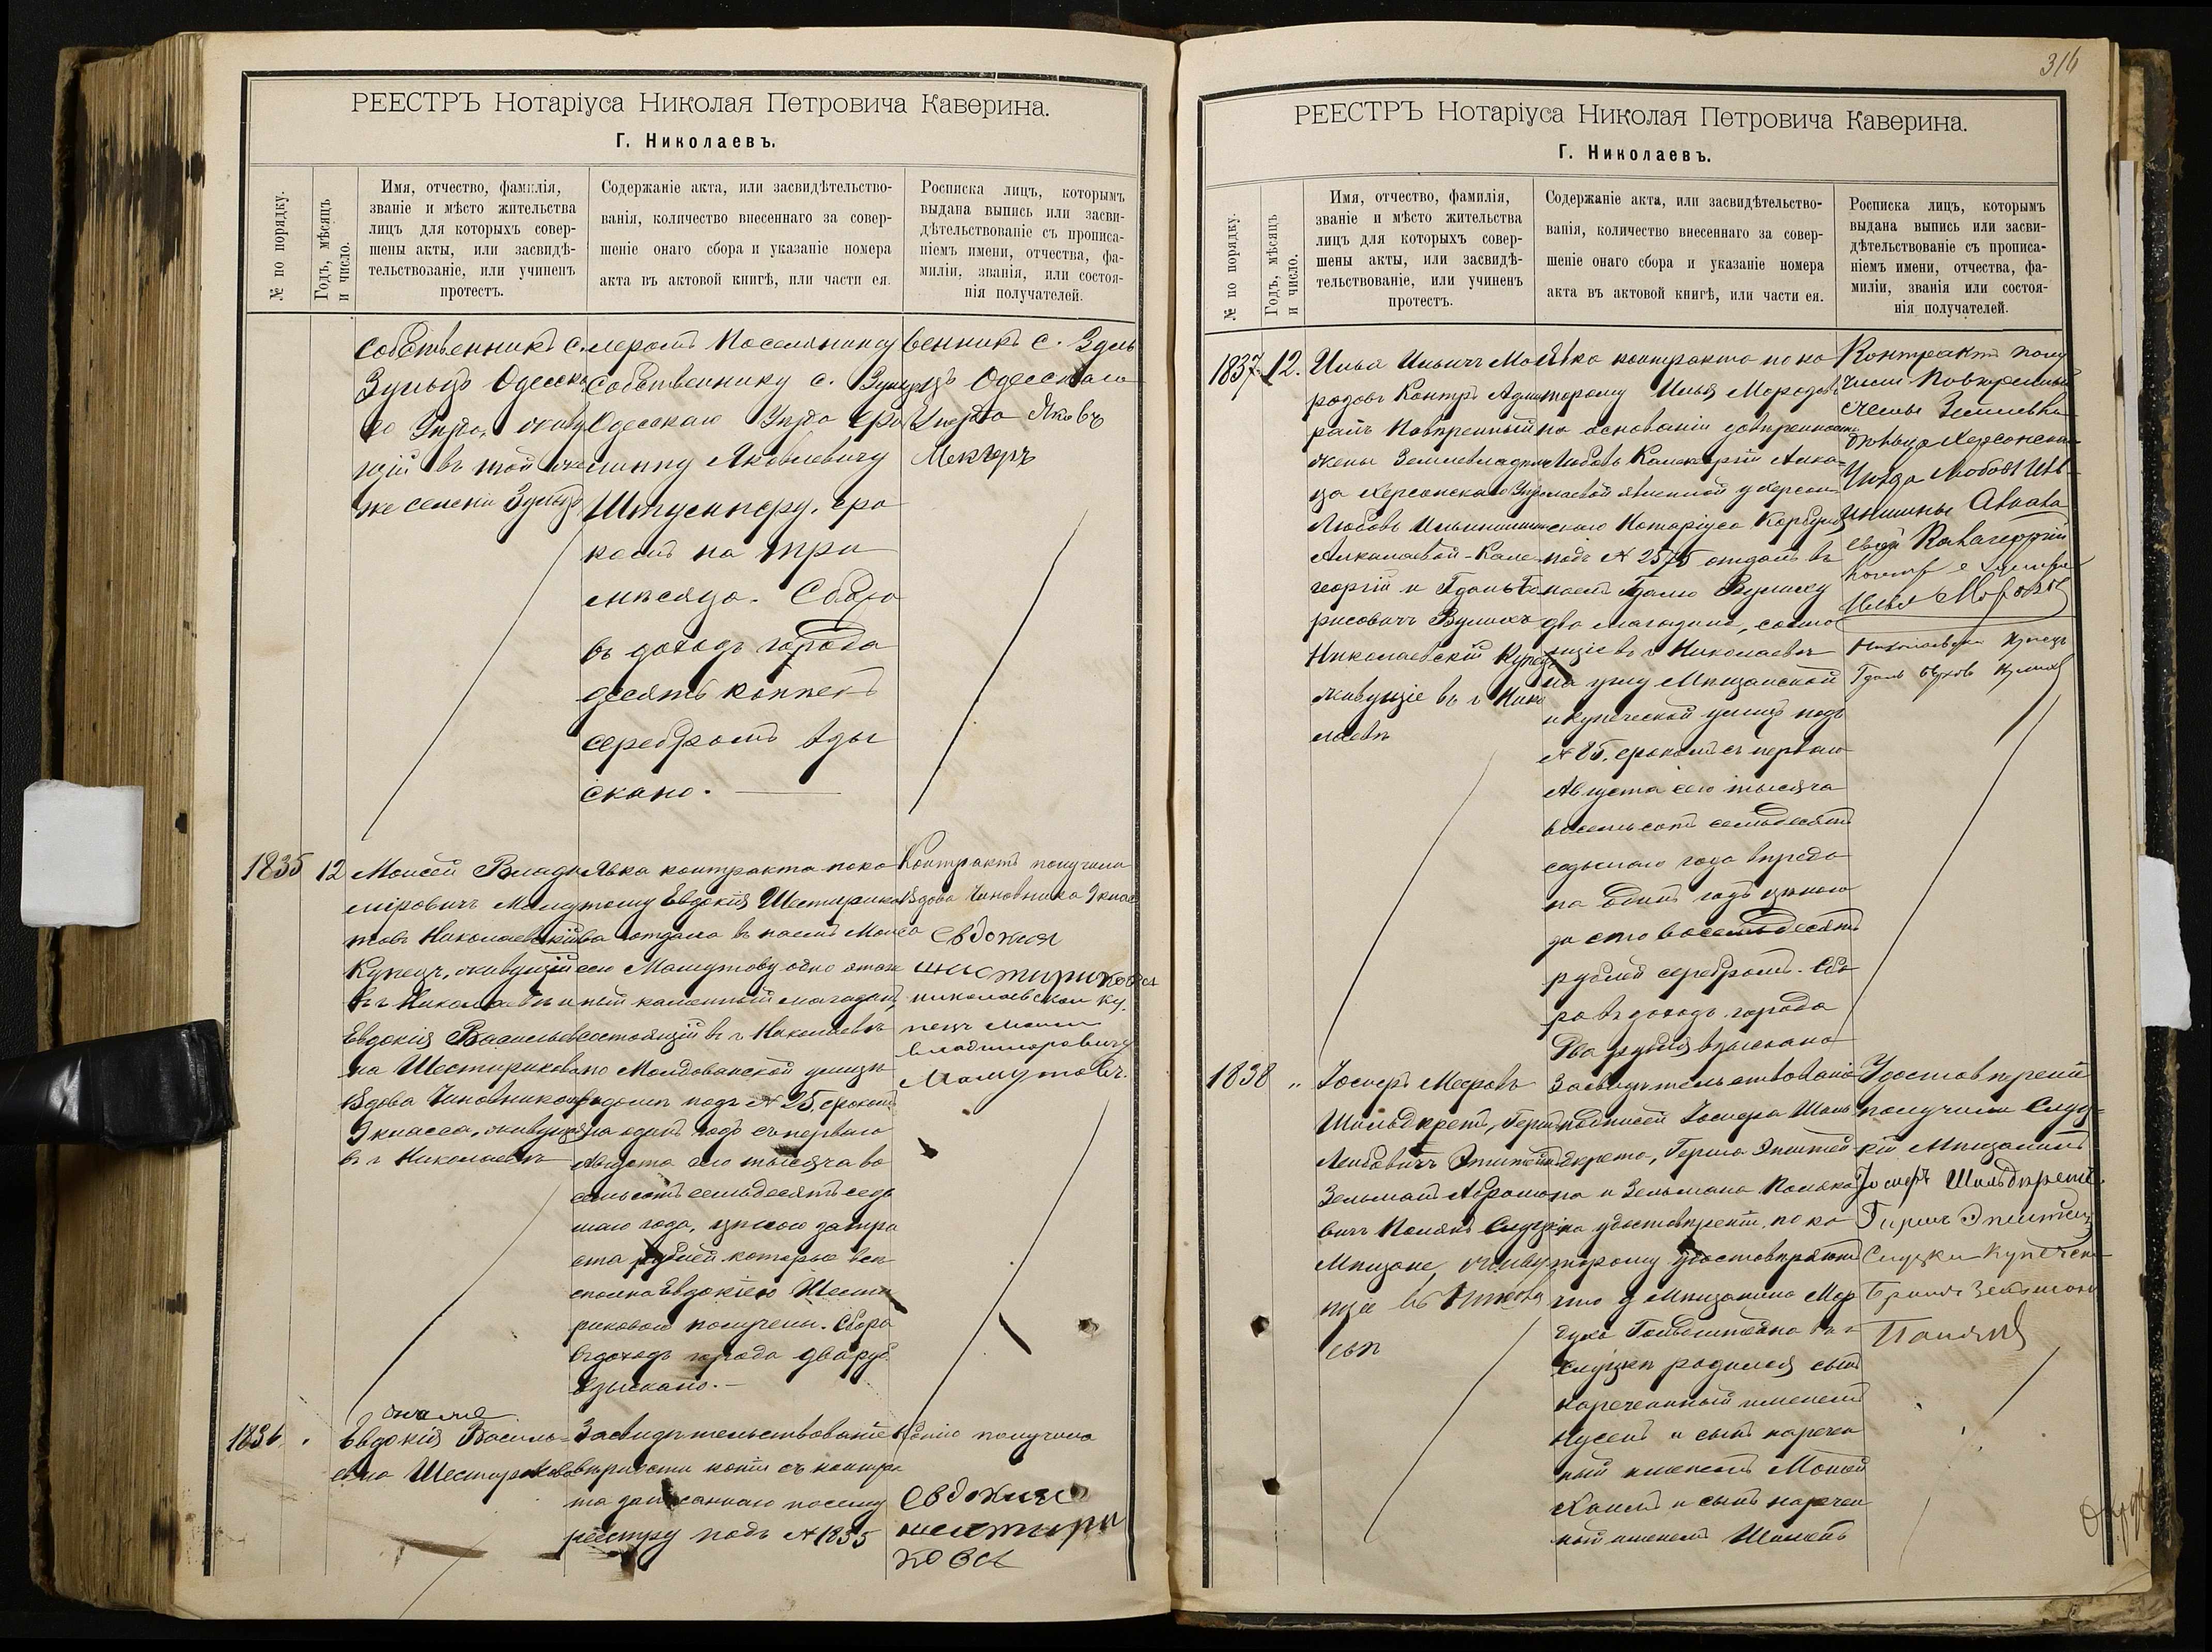 РЕЕСТРЪ Нотаріуса Николая Петровича Каверина.
Г. Николаевъ.
№ по порядку.
Годъ, мѣсяцъ
и число.
Имя, отчество, фамилія,
званіе и мѣсто жительства
лицъ для которыхъ совер-
шены акты, или засвидѣ-
тельствованіе, или учиненъ
протестъ.
Содержаніе акта, или засвидѣтельство-
ванія, количество внесеннаго за совер-
шеніе онаго сбора и указаніе номера
акта въ актовой книгѣ, или части ея.
Росписка лицъ, которымъ
выдана выпись или засви-
дѣтельствованіе съ прописа-
ніемъ имени, отчества, фа-
миліи, званія, или состоя-
нія получателей.
собственникъ с.
Зульцъ Одесска
го Уѣзда, живу
щій въ той
же селеніи Зульцъ
меромъ Поселянину
Собственнику с. Зульцъ
Одесскаго Уѣзда Фи
липпу Яковлевичу
сро
комъ на три
мѣсяца. Сбора
въ доходъ города
десять копѣекъ
серебромъ взы
скано.
венникъ с. Зуль
цъ Одесскаго
Уѣзда Яковъ
1835
12
Моисей Влади
міровичъ Маму
товъ Николаевскій
Купецъ, живущій
въ г Николаевѣ и
Евдокія Васильев
на Шестирикова
Вдова Чиновника
9 класса, живущая
въ г Николаевѣ
Явка контракта по ко
тому Евдокія Шестирико
ва отдала въ наемъ Мои
сею Мамутову одно этаж
ный каменный магазинъ,
состоящій въ г Николаевѣ
по Молдованской улицѣ
подъ № 25, срокомъ
на одинъ годъ съ перваго
Августа сего тысяча во
семьсотъ семьдесятъ седь
маго года, цѣною за три
ста рублей которые вс
сполна Евдокіею Шести
риковою получены. Сбора
въ доходъ города два руб.
взыскано.
Контрактъ получила
Вдова Чиновника 9 клас
са Евдокия
шистирикова
николаевской ку
пецъ Моисей
владимировичъ
Мамутовъ.
1836.
она же
Евдокія Василь=
евна Шестирикова
Засвидѣтельствованіе
вѣрности копіи съ контрак
та записаннаго по сему
реестру подъ № 1835
Копію получила
Евдокия
шистири
кова
316
РЕЕСТРЪ Нотаріуса Николая Петровича Каверина.
Г. Николаевъ.
№ по порядку.
Годъ, мѣсяцъ
и число.
Имя, отчество, фамилія,
званіе и мѣсто жительства
лицъ для которыхъ совер-
шены акты, или засвидѣ-
тельствованіе, или учиненъ
протестъ.
Содержаніе акта, или засвидѣтельство-
ванія, количество внесеннаго за совер-
шеніе онаго сбора и указаніе номера
акта въ актовой книгѣ, или части ея.
Росписка лицъ, которымъ
выдана выпись или засви-
дѣтельствованіе съ прописа-
ніемъ имени, отчества, фа-
миліи, званія или состоя-
нія получателей.
1837
12.
Илья Ильичъ Мо
розовъ Контръ Адми
ралъ Повѣренный
жены Землевладѣль
ца Херсонскаго Уѣзда
Любовь Ильинишны
Алкалаевой-Кала
георгій и Гдаль Бо
рисовичъ
Николаевскій Купецъ
живущіе въ г Нико
лаевѣ
Явка контракта по ко
торому Илья Морозовъ
на основаніи довѣренности
Любовь Калагеоргій Алка=
лаевой явленной у Херсон
скаго Нотаріуса
подъ № 2575 отдалъ въ
наемъ Гдалю
два магазина, состо
ящіе въ г Николаевѣ
на углу Мѣщанской
и Купеческой улицъ подъ
№ 85, срокомъ съ перваго
Августа сего тысяча
восемьсотъ семьдесятъ
седьмаго года впредь
на одинъ годъ цѣною
за сто восемьдесятъ
рублей серебромъ. Сбо
ра въ доходъ города
два рубля взыскано
Контрактъ полу
чилъ Повѣренный
жены Землевла
дѣльца Херсонскаго
Уѣзда Любови Иль
инишны Алкала
евой Калагеоргій
Илья Морозовъ
Николаевскій Купецъ
Гдаль
1838
"
Іосифъ
Шильдкретъ, Герш
Лейбовичъ Эпштейнъ
Зельманъ Абрамо
вичъ Полякъ Слуцкіе
Мѣщане, живу
щіе въ Никола
евѣ
Засвидѣтельствованіе
подписей Іосифа Шиль
дкрета, Герша Эпштей
на и Зельмана Поляка
на удостовѣреніи, по ко
торому удостовѣряютъ
что у Мѣщанина Мор
духа Гольдштейна въ г
Слуцкѣ родился сынъ
нареченный именемъ
Нусенъ и сынъ наречен
ный именемъ Мошей
Хаимъ и сынъ наречен
ный именемъ
Удостовѣреніе
получили Слуц=
кій Мѣщанинъ
Іосифъ Шильдкретъ.
Гиршъ Эпштейнъ
Зельманъ
Полякъ